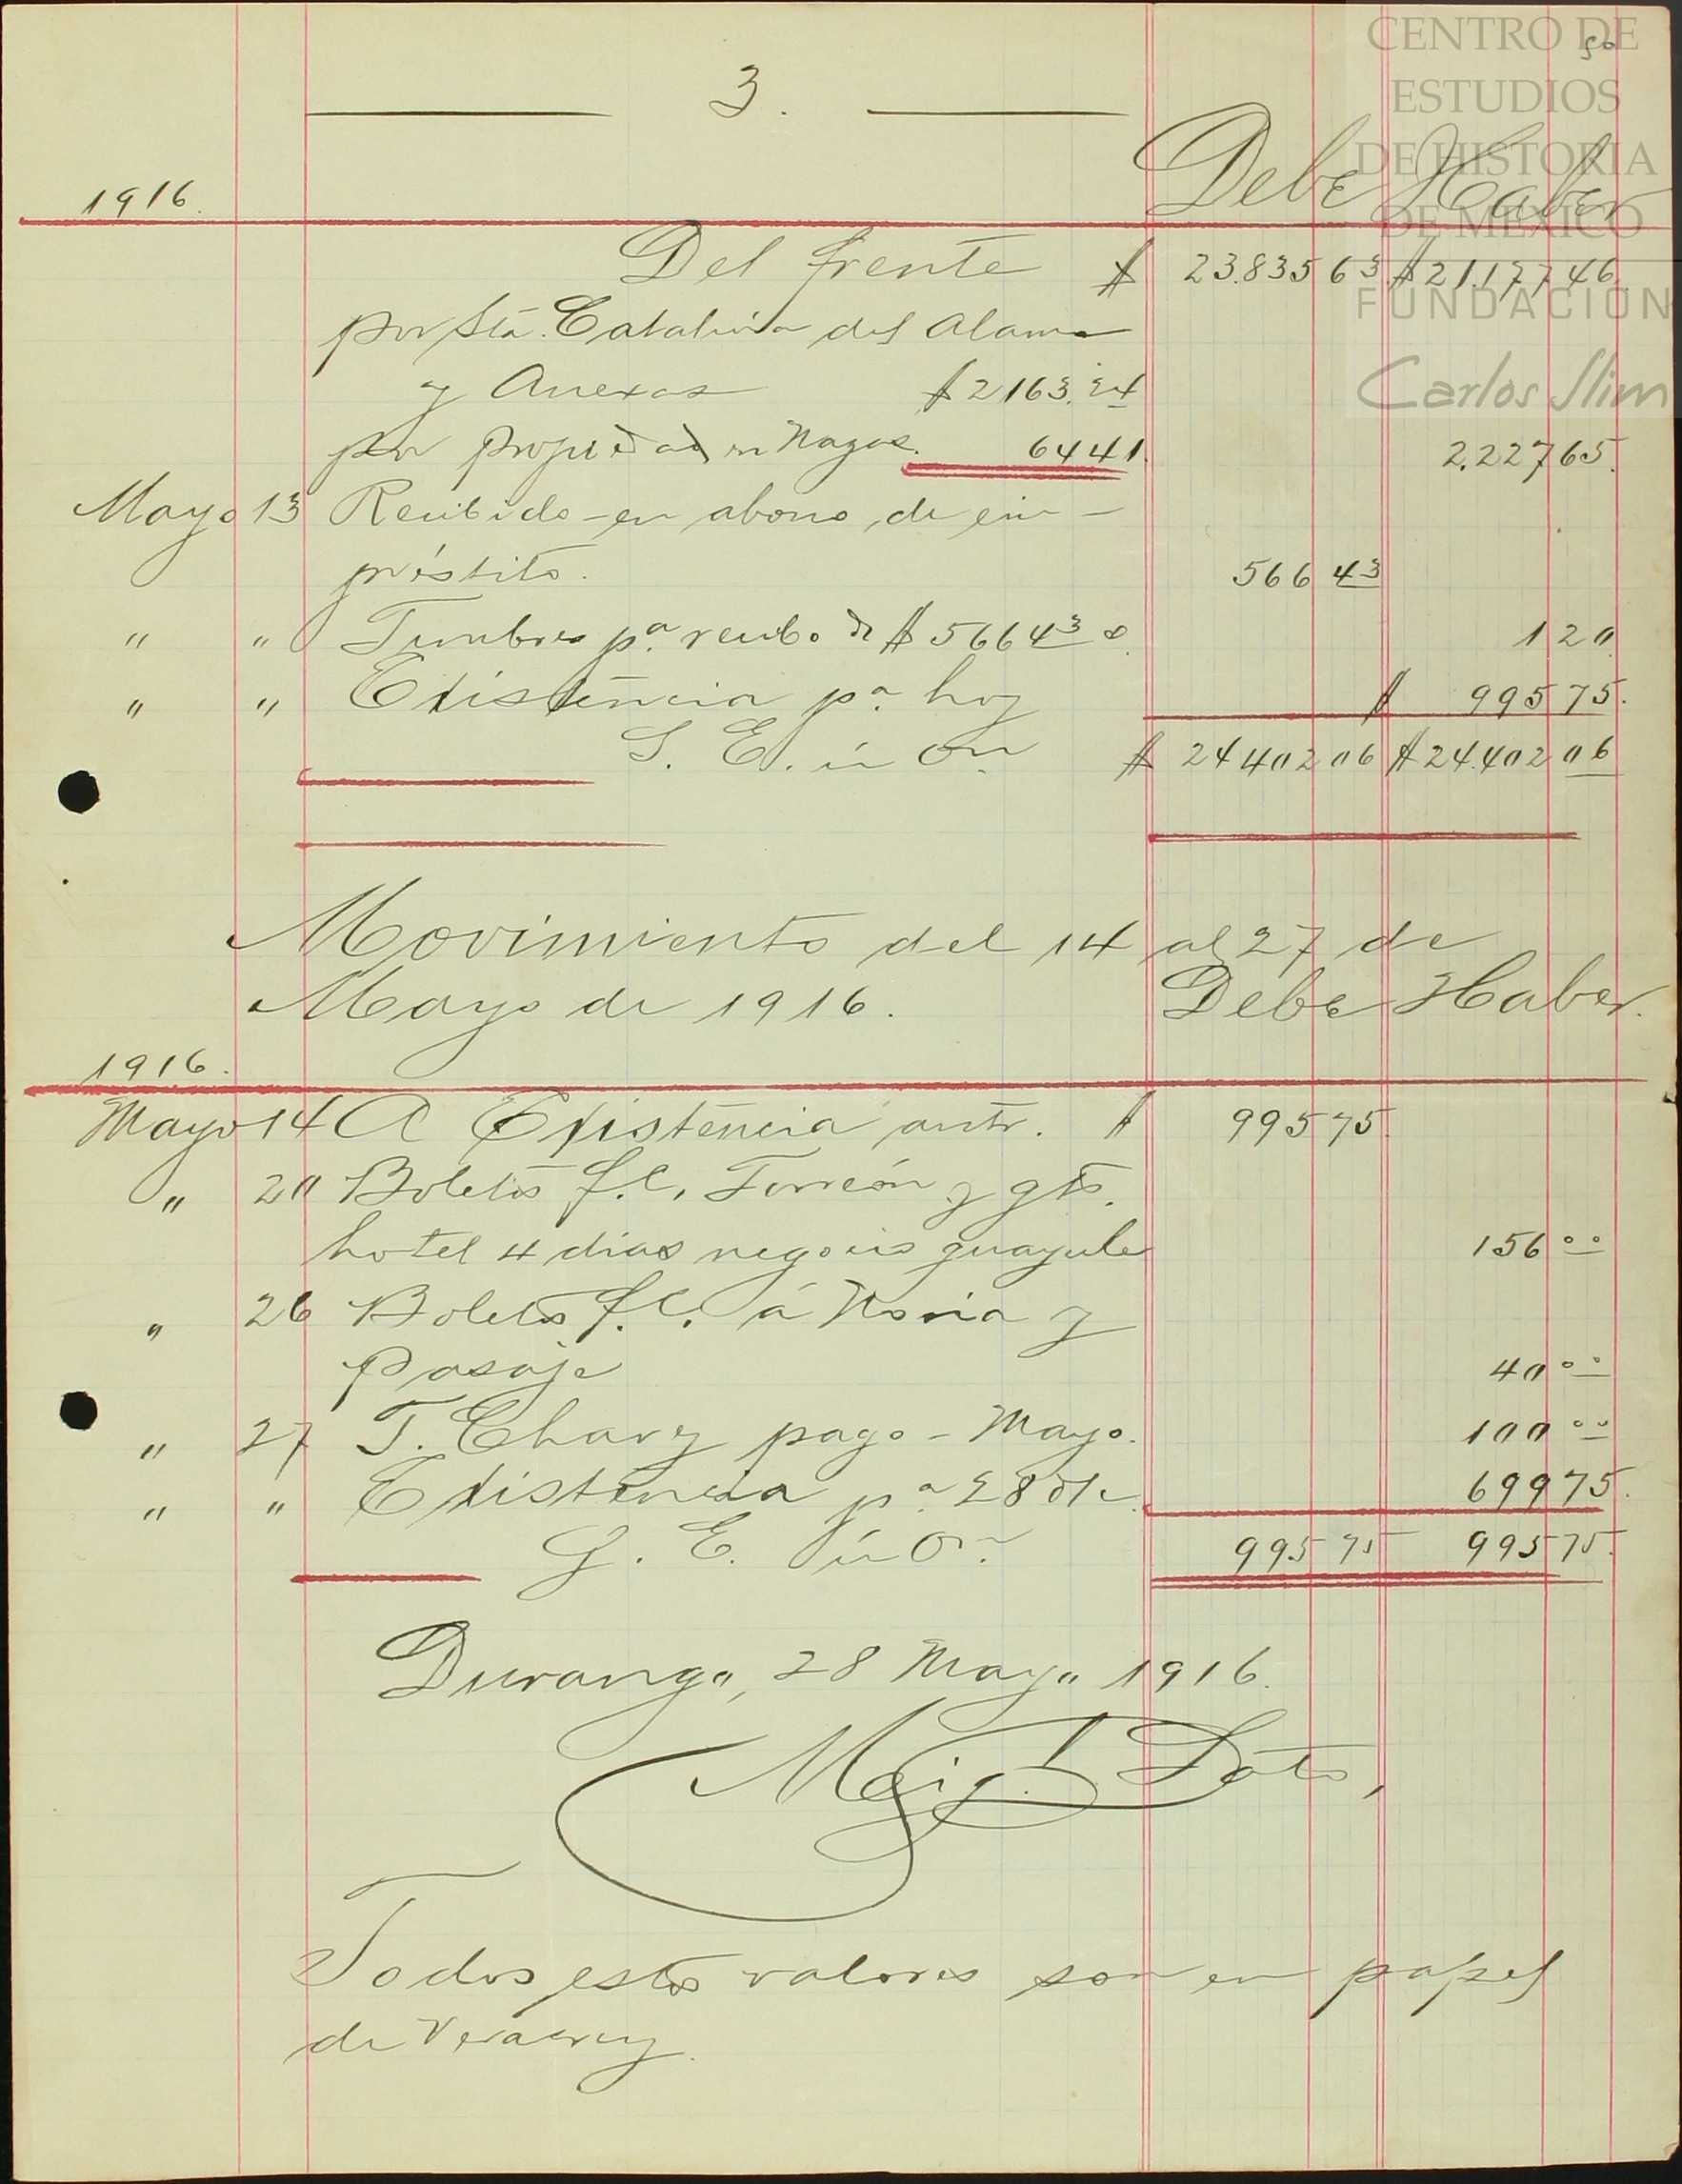 CENTRO DE
ESTUDIOS
DE HISTORIA
DE MÉXICO
FUNDACIÓN
Carlos Slim
50
3.
1916. Debe Haber
Del frente $ 23.835 63 $ 21.177 46.
por Sta. Catalina del Alamo
y Anexas $ 2163.24
por propiedad en Nazas. 64 41. 2.227 65.
Mayo 13 Recibido en abono de em-
préstito. 566 43
" " Timbres pa. recibo de $ 566 43 1 20
" " Existencia pa. hoy $ 995 75.
S. E. ú On. $ 24402 06 $ 24.402 06
Movimiento del 14 al 27 de
Mayo de 1916. Debe Haber.
1916.
Mayo 14 A Existencia antr. $ 995 75.
" 20 Boletos f.c. Torreón y gts.
hotel 4 dias negocio guayule 156 00
" 26 Boletos f.c. á Noria y
Pasaje 40 00
" 27 T. Chavz pago - Mayo. 100 00
" " Existencia pa 28 de 699 75.
S. E. ú On. 995 75 995 75.
Durango, 28 Mayo 1916.
Mig. Soto,
Todos estos valores son en papel
de Veracruz.